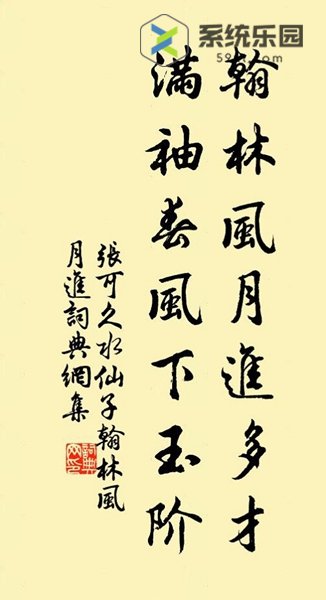 翰林風月進多才
滿袖春風下玉阶
張可久水仙子翰林風
月進詞典網集
系统乐园